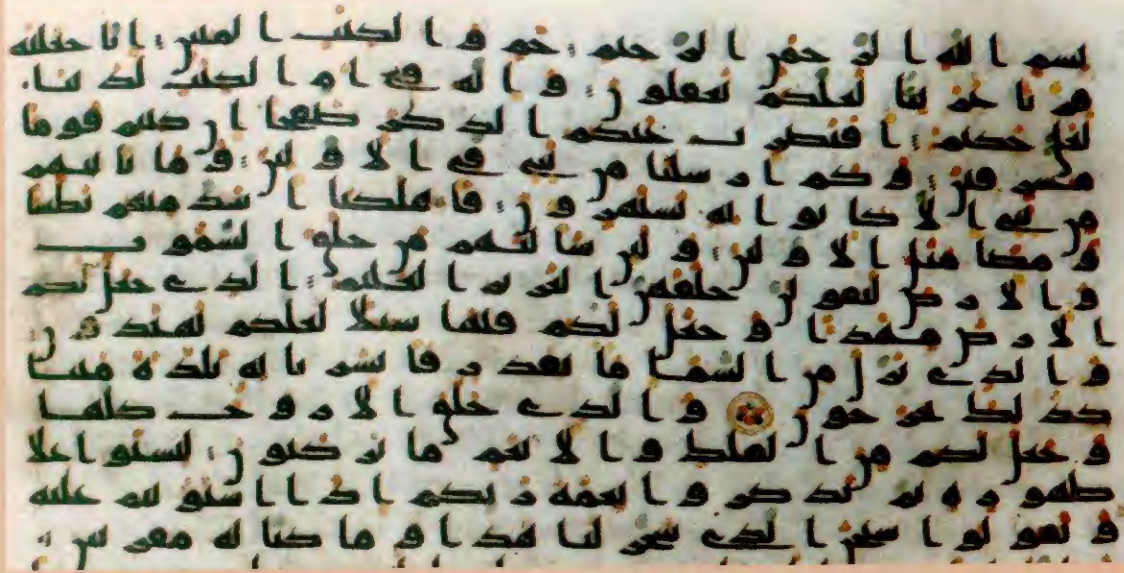 بسم الله الرحمن الرحيم حم والكتب المبين انا جعلنه
قرانا عربيا لعلكم تعقلون وانه في ام الكتب لدينا
لعلي حكيم افنضرب عنكم الذكر صفحا ان كنتم قوما
مسرفين وكم ارسلنا من نبي في الاولين وما ياتيهم
من نبي الا كانوا به يستهزون فاهلكنا اشد منهم بطشا
ومضا مثل الاولين ولين سالتهم من خلق السموت
والارض ليقولن خلقهن العزيز العليم الذي جعل لكم
الارض مهدا وجعل لكم فيها سبلا لعلكم تهتدون
والذي نزل من السما ما بقدر فانشرنا به بلدة ميتا
كذلك تخرجون والذي خلق الازوج كلها
وجعل لكم من الفلك والانعم ما تركبون لتستوا علا
ظهوره ثم تذكروا نعمة ربكم اذا استويتم عليه
وتقولوا سبحن الذي سخر لنا هذا وما كنا له مقرنين